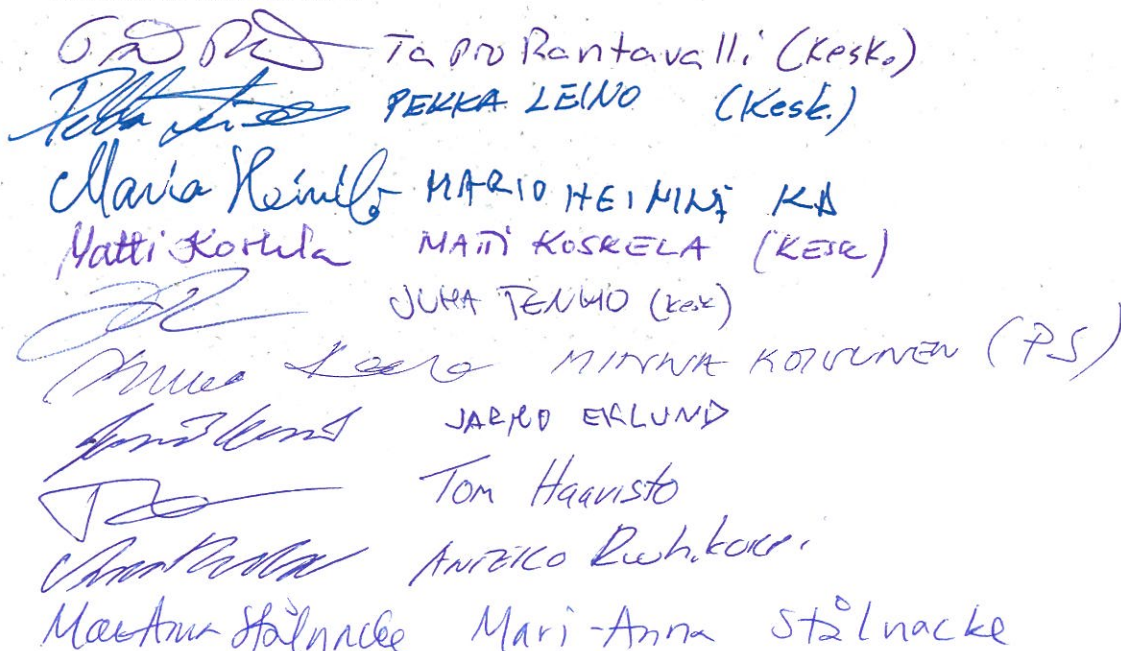 Tapio Rantavalli (Kesk.)
Pekka Leino PEKKA LEINO (Kesk.)
Maria Heinilä MARIO HEIMINÄ KA
Matti Koskela MATTI KOSKELA (KESK)
JUHA TENHO (kesk)
MINNA KOIVUNEN (PS)
JARMO EKLUND
Tom Haavisto
Ruohikorpi
Mari-Anna Stålnacke Mari-Anna Stålnacke